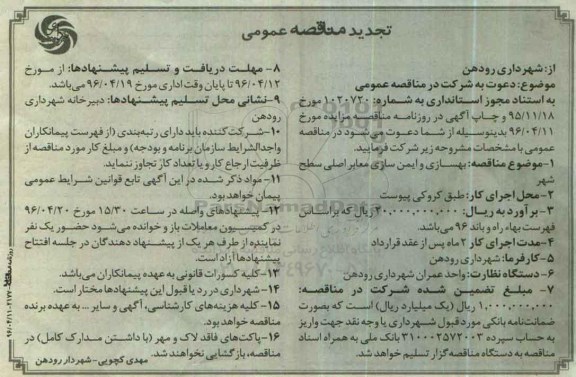 تجدید مناقصه عمومی
از: شهرداری رودهن
موضوع: دعوت به شرکت در مناقصه عمومی
به استناد مجوز استانداری به شماره: ۱۰۲۰۷۲۰ مورخ
۹۵/۱۱/۱۸ و چاپ آگهی در روزنامه مناقصه مزایده مورخ
۹۶/۰۴/۱۱ بدینوسیله از شما دعوت می‌شود در مناقصه
عمومی با مشخصات مشروحه زیر شرکت فرمایید.
۱-موضوع مناقصه: بهسازی و ایمن سازی معابر اصلی سطح
شهر
۲-محل اجرای کار: طبق کروکی پیوست
۳- برآورد به ریال: ۲۰,۰۰۰,۰۰۰,۰۰۰ ریال که براساس
فهرست بهاء راه و باند ۹۶ می‌باشد.
۴-مدت اجرای کار ۲ ماه پس از عقد قرارداد
۵-کارفرما: شهرداری رودهن
۶-دستگاه نظارت: واحد عمران شهرداری رودهن
۷- مبلغ تضمین شده شرکت در مناقصه:
۱,۰۰۰,۰۰۰,۰۰۰ ریال (یک میلیارد ریال) است که بصورت
ضمانت‌نامه بانکی مورد قبول شهرداری یا وجه نقد جهت واریز
به حساب سپرده ۳۱۰۰۰۲۵۷۲۰۰۳ بانک ملی به همراه اسناد
مناقصه به دستگاه مناقصه گزار تسلیم خواهد شد.
۸- مهلت دریافت و تسلیم پیشنهادها: از مورخ
۹۶/۰۴/۱۲ تا پایان وقت اداری مورخ ۹۶/۰۴/۱۹ می‌باشد.
۹-نشانی محل تسلیم پیشنهادها: دبیرخانه شهرداری
رودهن
۱۰-شرکت‌کننده باید دارای رتبه‌بندی (از فهرست پیمانکاران
واجدالشرایط سازمان برنامه و بودجه) و مبلغ کار مورد مناقصه از
ظرفیت ارجاع کار و یا تعداد کار تجاوز ننماید.
۱۱-مواد ذکر شده در این آگهی تابع قوانین شرایط عمومی
پیمان خواهد بود.
۱۲- پیشنهادهای واصله در ساعت ۱۵/۳۰ مورخ ۹۶/۰۴/۲۰
در کمیسیون معاملات باز و خوانده می‌شود حضور یک نفر
نماینده از طرف هر یک از پیشنهاد دهندگان در جلسه افتتاح
پیشنهادها آزاد است.
۱۳-کلیه کسورات قانونی به عهده پیمانکاران می‌باشد.
۱۴-شهرداری در رد یا قبول این پیشنهادها مختار است.
۱۵-کلیه هزینه‌های کارشناسی، آگهی و سایر ... به عهده برنده
مناقصه خواهد بود.
۱۶-پاکت‌های فاقد لاک و مهر (با داشتن مدارک کامل) در
مناقصه، بازگشایی نخواهند شد.
مهدی کچویی- شهردار رودهن